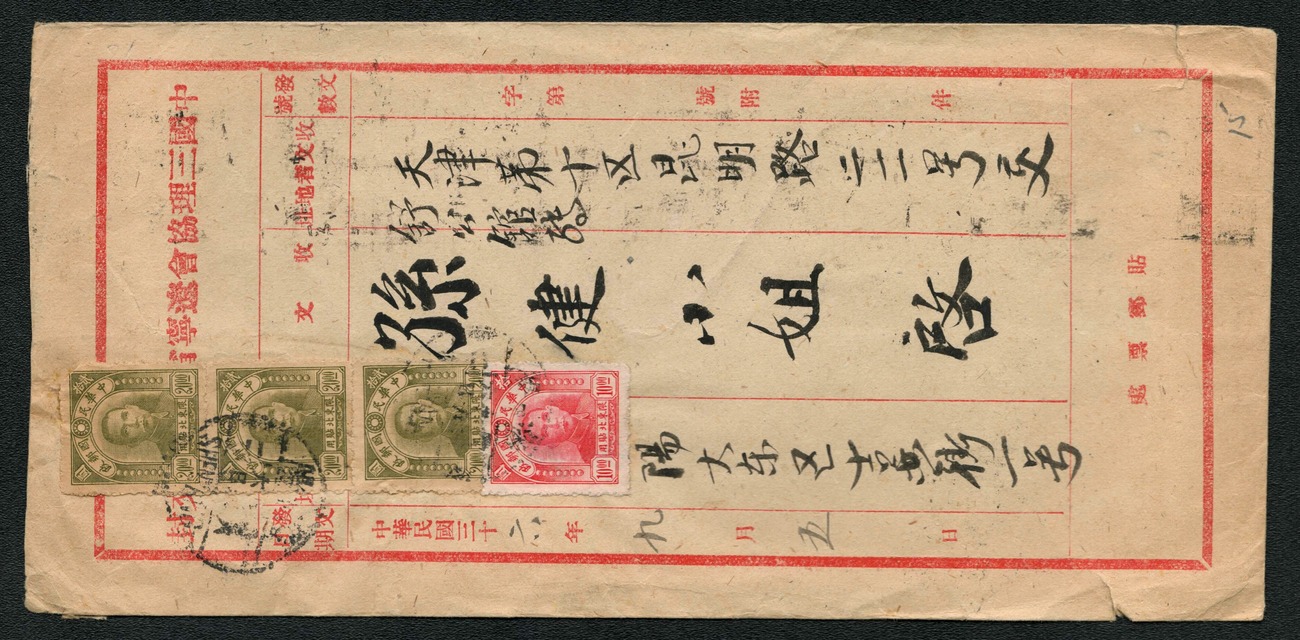 中國三理協會遼寧
發文號數
字第 號附 件
收文者地址
天津第十区昆明路 号交
舒公館
收文
孫健小姐啓
陽大东区 街一号
發文日期
中華民國三十六年九月五日
貼郵票處
中華民國郵政
限東北貼用
20 00
中華民國郵政
限東北貼用
20 00
中華民國郵政
限東北貼用
20 00
中華民國郵政
限東北貼用
10 00
15